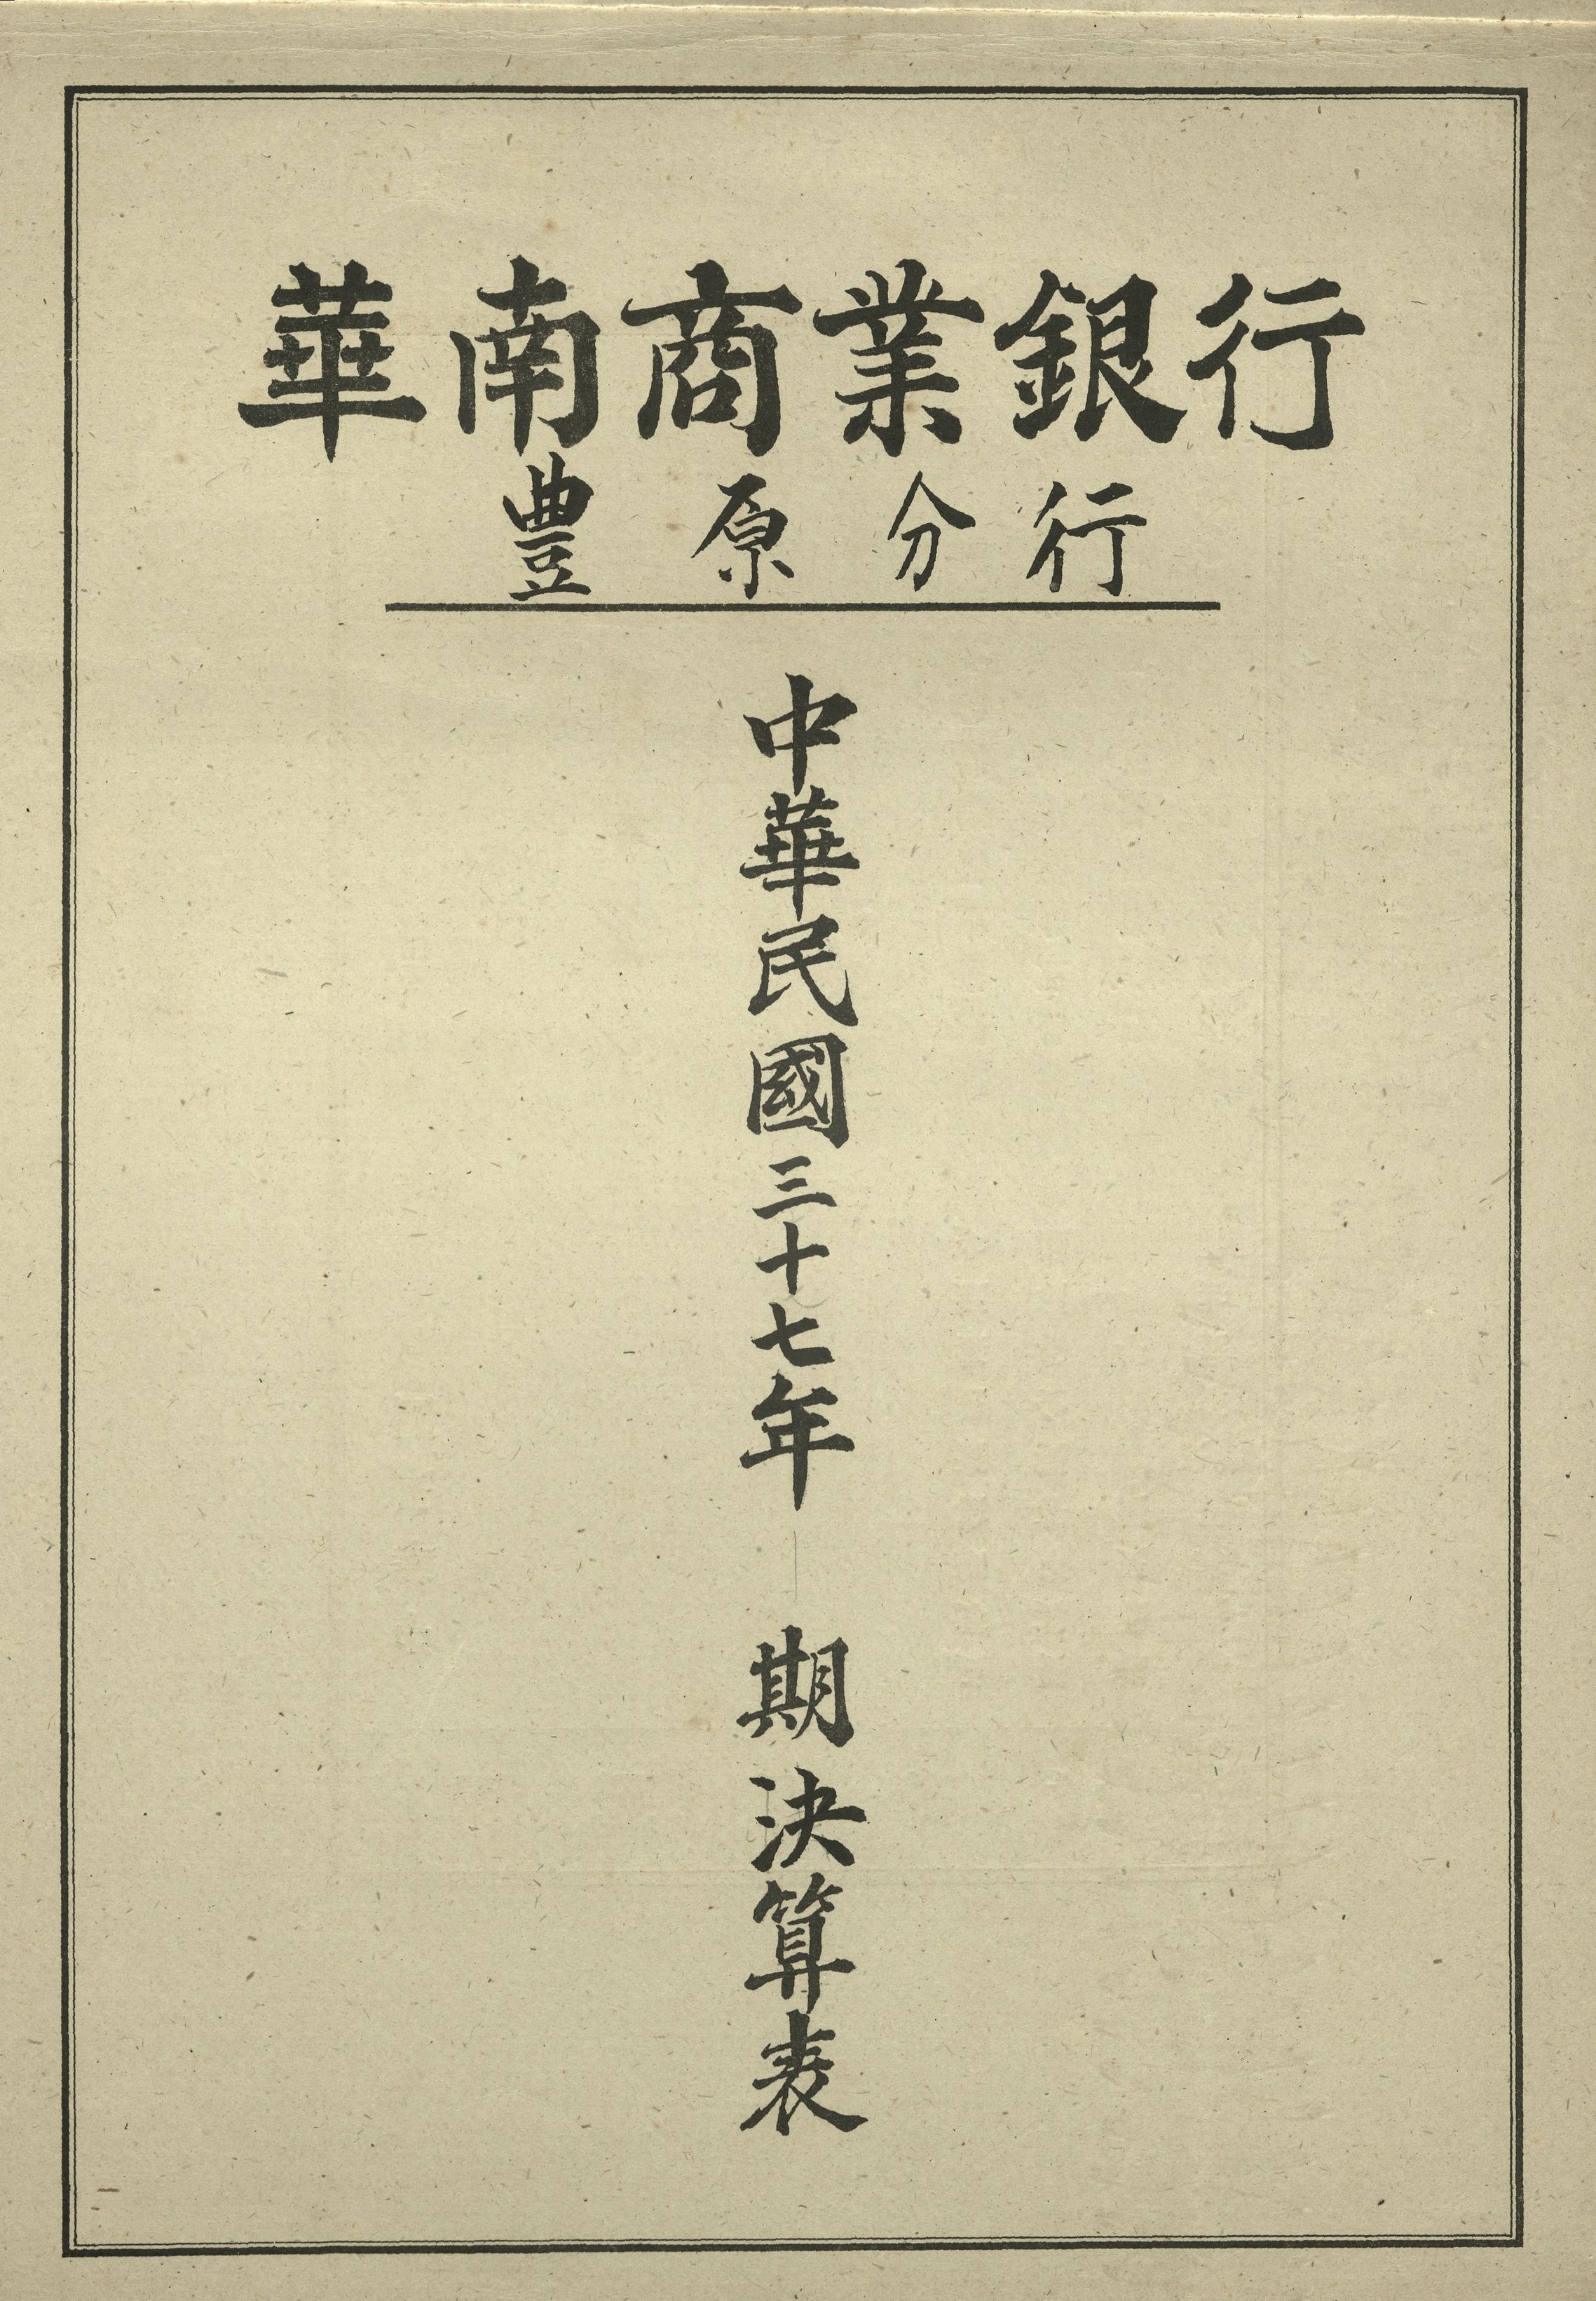 華南商業銀行
豊原分行
中華民國三十七年 期決算表